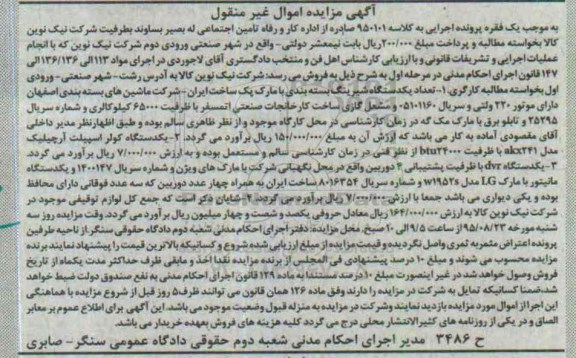 آگهی مزایده اموال غیر منقول
به موجب یک فقره پرونده اجرایی به کلاسه ۹۵۰۱۰۱ صادره از اداره کار و رفاه تامین اجتماعی له بصیر بساوند بطرفیت شرکت نیک نوین
کالا بخواسته مطالبه و پرداخت مبلغ ۲۰۰/۰۰۰ ریال بابت نیمعشر دولتی- واقع در شهر صنعتی ورودی دوم شرکت نیک نوین که با انجام
عملیات اجرایی و تشریفات قانونی و با ارزیابی کارشناس اهل فن و منتخب دادگستری آقای لاجوردی در اجرای مواد ۱۱۳ الی ۱۳۶/۱۳۶ الی
۱۴۷ قانون اجرای احکام مدنی در مرحله اول به شرح ذیل به فروش می رسد: شرکت نیک نوین کالا به آدرس رشت- شهر صنعتی- ورودی
اول بخواسته مطالبه کارگری. ۱- تعداد یکدستگاه شیرینگ بسته بندی با مارک پک ساخت ایران- شرکت ماشین های بسته بندی اصفهان
دارای موتور ۲۲۰ ولتی و سریال ۰۵۱۰۱۱۶۰ و مشعل گازی ساخت کارخانجات صنعتی اتمسفر با ظرفیت ۶۵۰۰۰ کیلوکالری و شماره سریال
۲۵۲۹۵ و تابلو برق با مارک مک گه در زمان کارشناسی در محل کارگاه موجود و از نظر ظاهری سالم بوده و طبق اظهارنظر مدیر داخلی
آقای مقصودی آماده به کار می باشد که ارزش آن به مبلغ ۱۵۰/۰۰۰/۰۰۰ ریال برآورد می گردد. ۲- یکدستگاه کولر اسپیلت آرچیلیک
مدل akx۲۴۱ با ظرفیت btu۲۴۰۰۰ از نظر فنی در زمان کارشناسی سالم و مستعمل بوده و به ارزش ۷/۰۰۰/۰۰۰ ریال برآورد می گردد.
۳- یکدستگاه dvr با ظرفیت پشتیبانی ۴ دوربین واقع در محل نگهبانی شرکت با مارک های ویژن و شماره سریال ۱۴۰۰۱۴۷ و یکدستگاه
مانیتور با مارک LG مدل w۱۹۵۲s و شماره سریال ۸۰۱۶۳۵۴ ساخت ایران به همراه چهار عدد دوربین که سه عدد فوقانی دارای محافظ
بوده و یکی دیواری می باشد جمعا با ارزش ۷/۰۰۰/۰۰۰ ریال برآورد می گردد. ۴- شایان ذکر است که جمع کل لوازم توقیفی موجود در
شرکت نیک نوین کالا به ارزش ۱۶۴/۰۰۰/۰۰۰ ریال معادل حروفی یکصد و شصت و چهار میلیون ریال برآورد می گردد. وقت مزایده روز سه
شنبه مورخه ۹۵/۰۸/۲۳ از ساعت ۹/۵ الی ۱۰ صبح. محل مزایده: دفتر اجرای احکام مدنی شعبه دوم دادگاه حقوقی سنگر. از ناحیه طرفین
پرونده اعتراض مثمر به ثمری واصل نگردیده و قیمت مزایده از مبلغ ارزیابی شده شروع و کسانیکه بالاترین قیمت را پیشنهاد نمایند برنده
مزایده محسوب می شوند و مبلغ ۱۰ درصد پیشنهادی فی المجلس از برنده مزایده نقدا اخذ و مابقی ظرف حداکثر مدت یکماه از تاریخ
فروش وصول خواهد شد در غیر اینصورت مبلغ ۱۰ درصد مستندا به ماده ۱۲۹ قانون اجرای احکام مدنی به نفع صندوق دولت ضبط خواهد
شد. ضمنا کسانیکه تمایل به شرکت در مزایده را دارند وفق ماده ۱۲۶ همان قانون می توانند ظرف ۵ روز قبل از شروع مزایده با هماهنگی
این اجرا از اموال مورد مزایده بازدید نمایند وشرکت در مزایده به منزله قبول وضعیت موجود می باشد. این آگهی برای اطلاع عموم بر معابر
الصاق و در یکی از روزنامه های کثیرالانتشار محلی درج می گردد کلیه هزینه های فروش بعهده خریدار می باشد.
ح ۳۴۸۶ مدیر اجرای احکام مدنی شعبه دوم حقوقی دادگاه عمومی سنگر- صابری